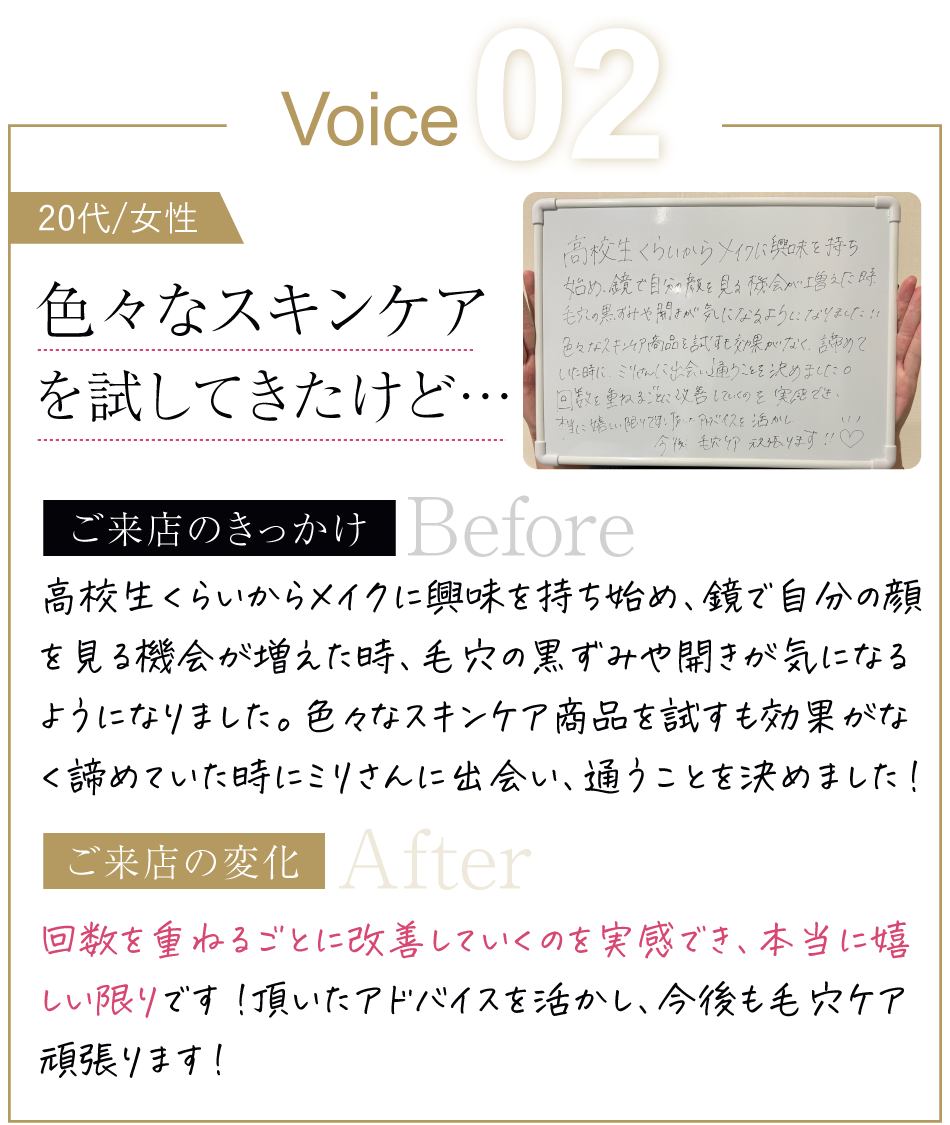 Voice 02
20代/女性
色々なスキンケア
を試してきたけど…
高校生くらいからメイクに興味を持ち
始め、鏡で自分の顔を見る機会が増えた時、
毛穴の黒ずみや開きが気になるようになりました!!
色々なスキンケア商品を試すも効果がなく、諦めて
いた時に、ミリさんに出会い通うことを決めました。
回数を重ねるごとに改善していくのを実感でき、
本当に嬉しい限りです!頂いたアドバイスを活かし
今後 毛穴ケア 頑張ります!!♡
ご来店のきっかけ Before
高校生くらいからメイクに興味を持ち始め、鏡で自分の顔
を見る機会が増えた時、毛穴の黒ずみや開きが気になる
ようになりました。色々なスキンケア商品を試すも効果がな
く諦めていた時にミリさんに出会い、通うことを決めました!
ご来店の変化 After
回数を重ねるごとに改善していくのを実感でき、本当に嬉
しい限りです!頂いたアドバイスを活かし、今後も毛穴ケア
頑張ります!